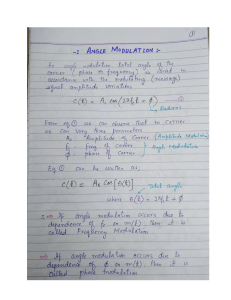 ①
-: ANGLE MODULATION :-
In angle modulation total angle of the
carrier (phase or frequency) is varied in
accordance with the modulating (message)
signal amplitude variations
C(t) = Ac cos(2πfct + φ) ①
Radians
From eq ① we can observe that in carrier
we can vary three parameters
Ac : Amplitude of Carrier (Amplitude Modulation)
fc : freq of carrier
Angle Modulation
φ : phase of carrier
Eq ① can be written as,
C(t) = Ac cos[θ(t)]
total angle
where θ(t) = 2πfct + φ
⇒ If angle modulation occurs due to
dependence of fc on m(t), then it is
called Frequency Modulation
⇒ If angle modulation occurs due to
dependence of φ on m(t), then it is
called phase modulation